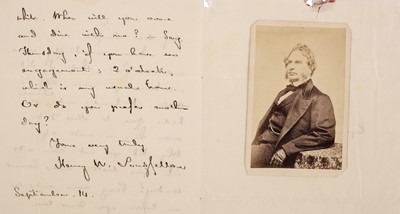 while. When will you come
and dine with me? Say
Thursday, if you have no
engagement; 2 o'clock,
which is my usual hour.
Or do you prefer another
day?
Yours very truly
Henry W. Longfellow
September 14.